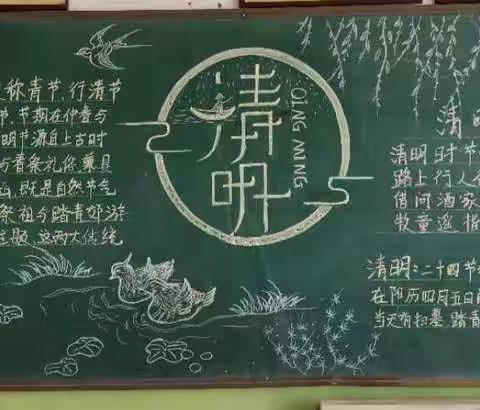 称青节、行清节
节、节期在仲春与
明节源自上古时
与春祭礼俗兼具
涵,既是自然节气
祭祖与踏青郊游
主题,这两大传统
清明
QING MING
清明
清明时节
路上行人
借问酒家
牧童遥指
清明:二十四节
在阳历四月五日
当天有扫墓、踏青